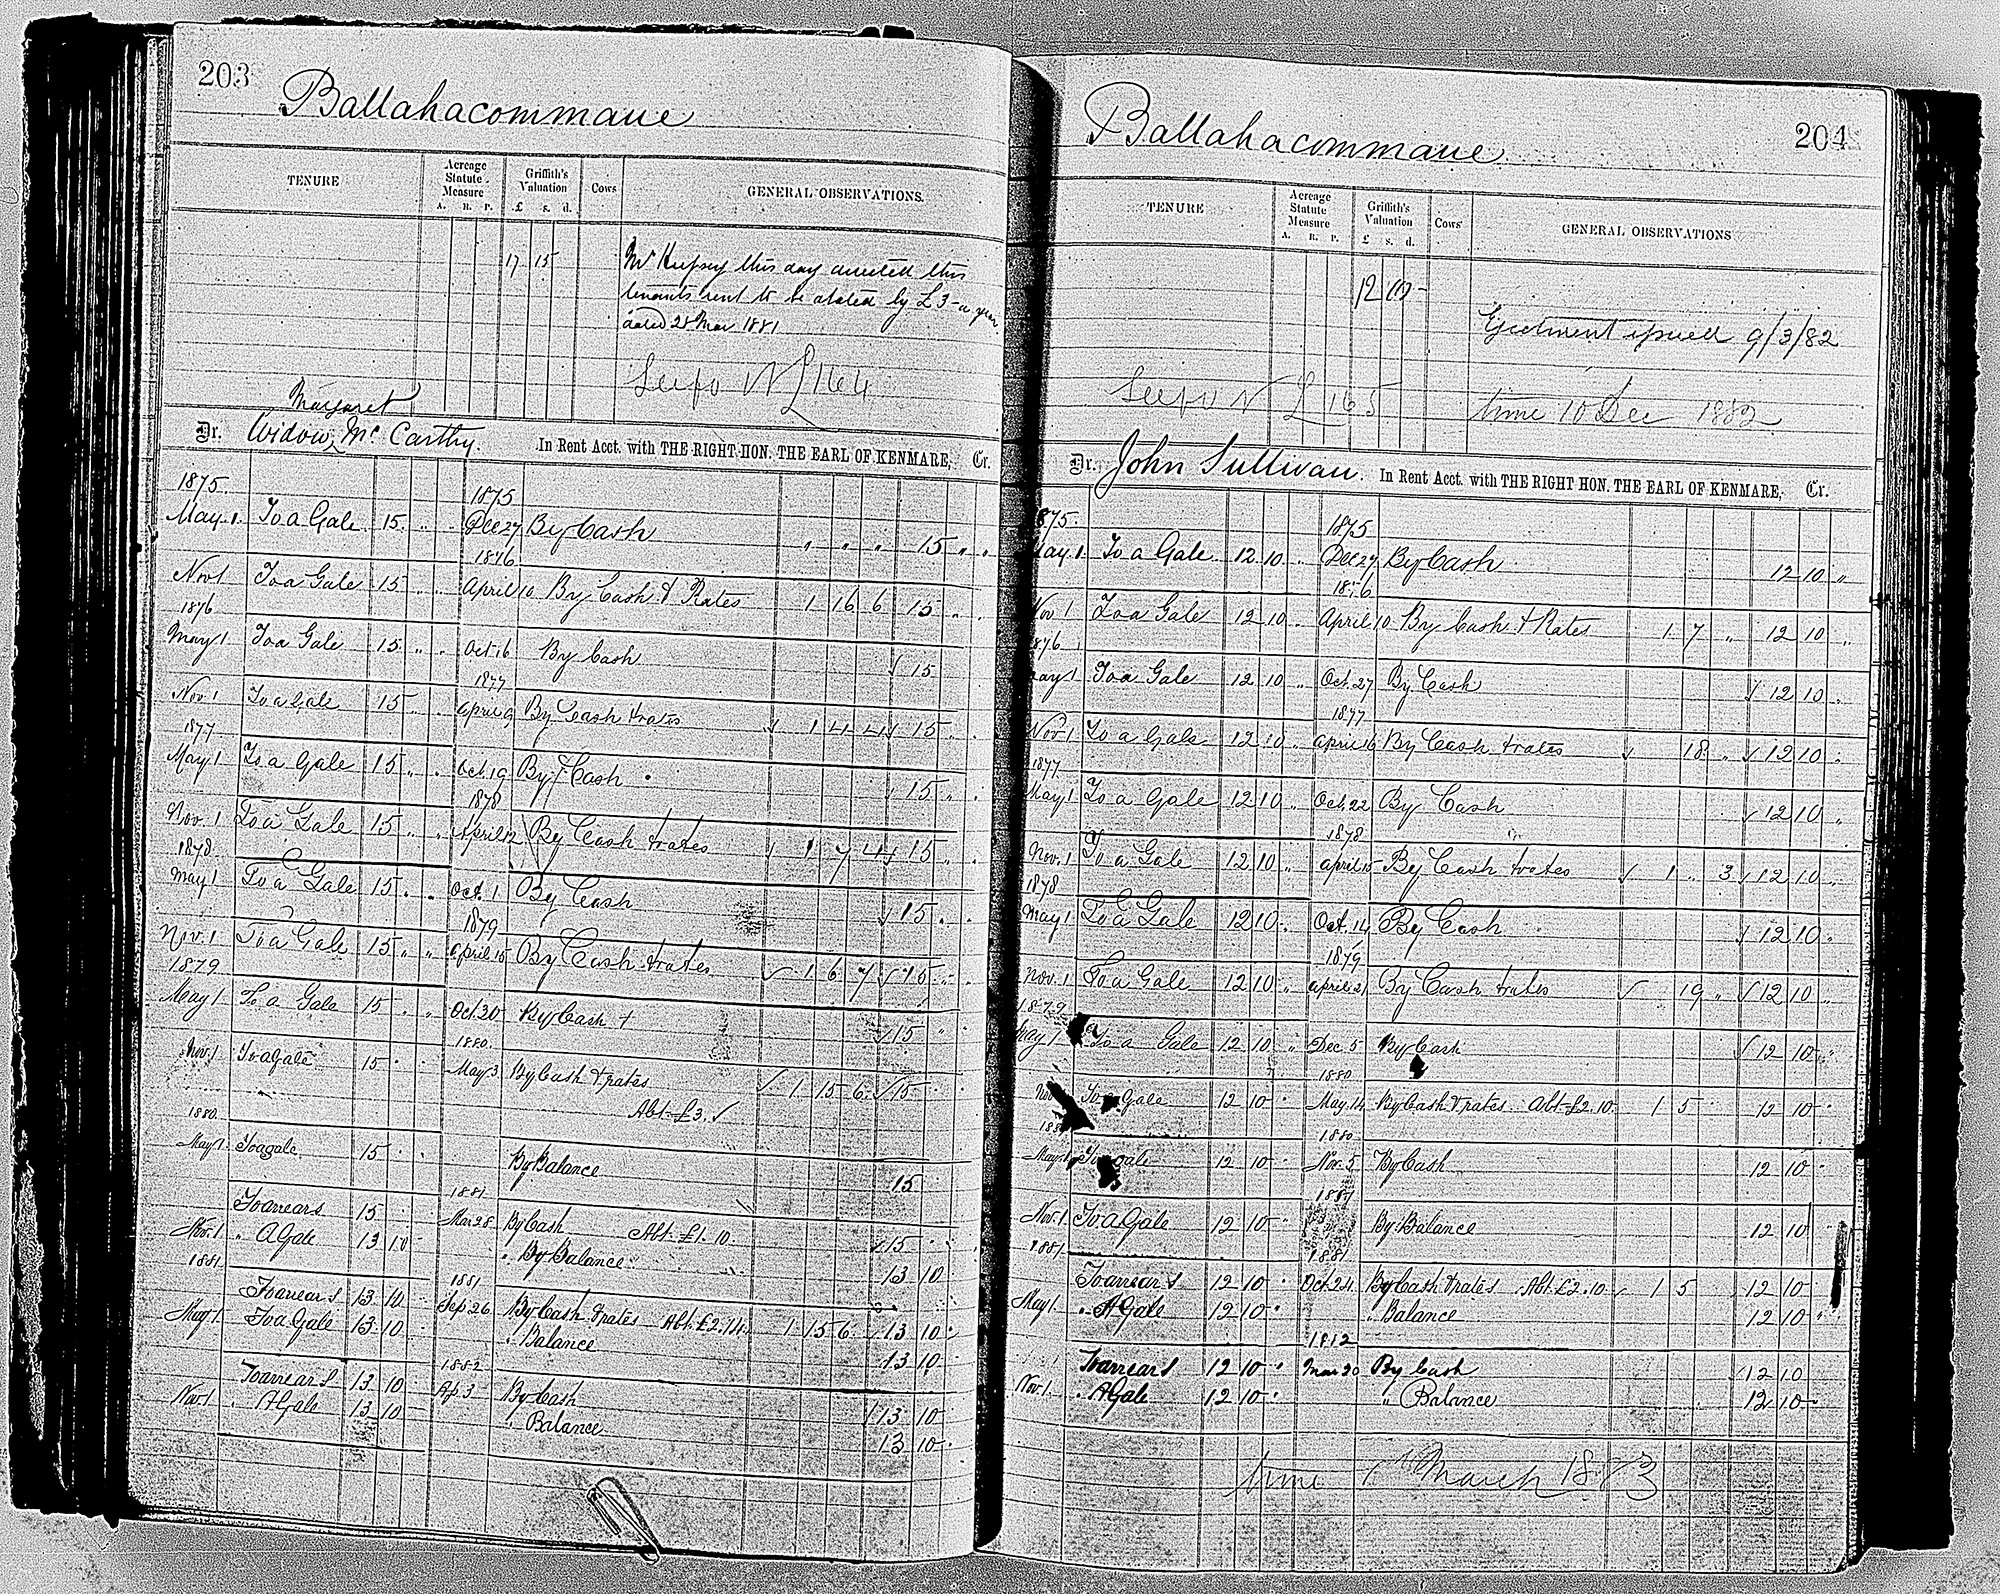 203
Ballahacommane
TENURE
Acreage Statute Measure A. R. P.
Griffith's Valuation £ s. d.
Cows
GENERAL OBSERVATIONS.
17 15
Mr Hussey this day directed this
tenants rent to be abated by £3 - a year
dated 28 Mar 1881
See fo N L 164
Margaret
Dr. Widow McCarthy. In Rent Acct. with THE RIGHT HON. THE EARL OF KENMARE, Cr.
1875. 1875
May 1. To a Gale 15 " " Dec 27 By Cash " " " 15 " "
1876
Nov 1 To a Gale 15 " " April 10 By Cash & Rates 1 16 6 15 " "
1876
May 1 To a Gale 15 " " Oct 16 By Cash √ 15
1877
Nov. 1 To a Gale 15 " " April 9 By Cash & rates √ 1 4 4 √ 15 " "
1877
May 1 To a Gale 15 " " Oct. 19 By Cash √ 15 " "
1878
Nov. 1 To a Gale 15 " " April 12 By Cash & rates √ 1 7 4 √ 15 " "
1878
May 1 To a Gale 15 " " Oct. 1 By Cash √ 15 " "
1879
Nov. 1 To a Gale 15 " " April 15 By Cash & rates √ 1 6 7 √ 15 " "
1879
May 1 To a Gale 15 " " Oct. 30 By Cash + √ 15 "
1880.
Nov. 1 To a Gale 15 " " May 3 By Cash & rates √ 1 15 6 √ 15
Abt. £3. √
1880
May 1. To a gale 15 " By Balance 15
1881
To arrears 15 " Mar 28 By Cash Abt. £1. 10. √ 15 " "
Nov. 1 " A Gale 13 10 " By Balance 13 10
1881 1881
To arrears 13 10 Sep. 26 By Cash & rates Abt. £2. 14. 1 15 6 √ 13 10 "
May 1. To a Gale 13 10 " Balance 13 10
1882
To arrears 13 10 Ap. 3 By Cash √ 13 10
Nov. 1 " A Gale 13 10 Balance 13 10 "
204
Ballahacommane
TENURE
Acreage Statute Measure A. R. P.
Griffith's Valuation £ s. d.
Cows
GENERAL OBSERVATIONS
12 10 -
Ejectment issued 9/3/82
See fo N L 165
time 10 Dec 1882
Dr. John Sullivan. In Rent Acct. with THE RIGHT HON. THE EARL OF KENMARE, Cr.
1875. 1875
May. 1 To a Gale 12 10 " Dec 27 By Cash 12 10 "
1876
Nov 1 To a Gale 12 10 " April 10 By Cash & Rates 1 7 " 12 10 "
1876
May 1 To a Gale 12 10 " Oct. 27 By Cash √ 12 10 "
1877
Nov. 1 To a Gale 12 10 " April 16 By Cash & rates √ 18 " √ 12 10 "
1877
May 1 To a Gale 12 10 " Oct. 22 By Cash √ 12 10 "
1878
Nov. 1 To a Gale 12 10 " april 15 By Cash & rates √ 1 " 3 √ 12 10 "
1878
May 1 To a Gale 12 10 " Oct. 14 By Cash √ 12 10 "
1879
Nov. 1 To a Gale 12 10 " april 21 By Cash & rates √ " 19 " √ 12 10 "
1879
May 1 To a Gale 12 10 " Dec 5 By Cash √ 12 10 "
1880
Nov To a Gale 12 10 " May. 14 By Cash & rates Abt. £2. 10. 1 5 " 12 10 "
1880
May 1 To a gale 12 10 " Nov. 5 By Cash 12 10 "
1881
Nov. 1 To a Gale 12 10 " By Balance 12 10 "
1881 1881
To arrears 12 10 " Oct 24 By Cash & rates Abt. £2. 10 √ 1 5 " 12 10 "
May 1. " A Gale 12 10 " " Balance 12 10 "
1882
To arrears 12 10 " Mar 20 By Cash √ 12 10
Nov. 1. " A Gale 12 10 " " Balance 12 10 "
time March 1883